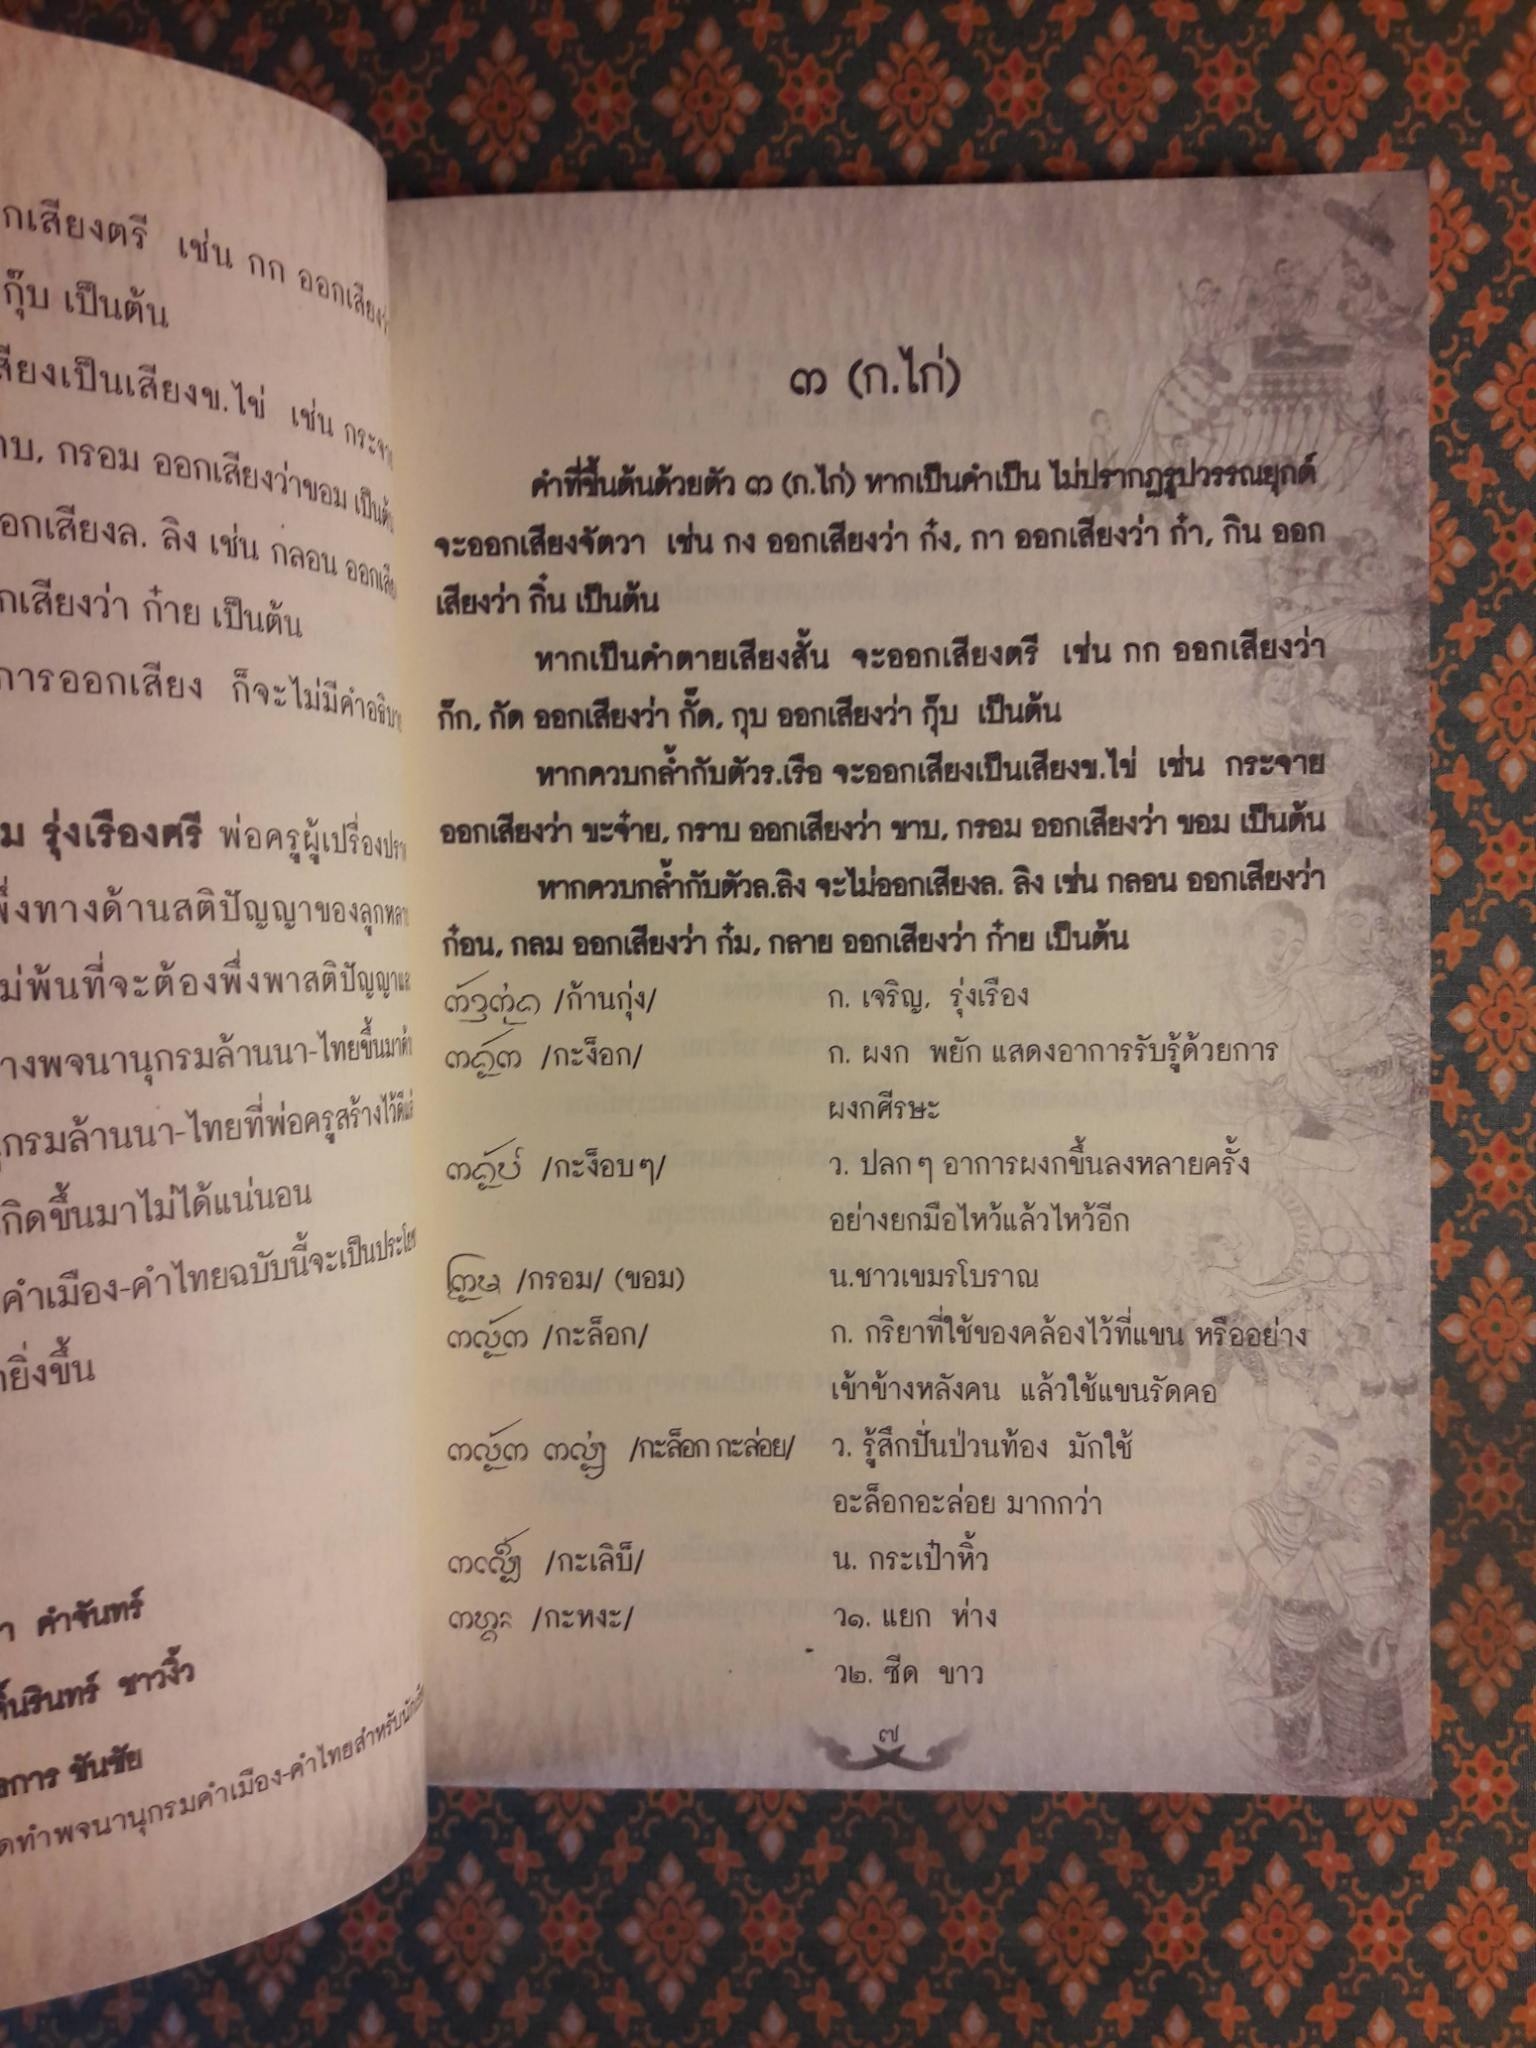 กเสียงตรี เช่น กก ออกเสียง
กุ๊บ เป็นต้น
สียงเป็นเสียงข.ไข่ เช่น กระจา
าบ, กรอม ออกเสียงว่าขอม เป็นต้
อกเสียงล. ลิง เช่น กลอน ออกเสีย
กเสียงว่า ก๋าย เป็นต้น
การออกเสียง ก็จะไม่มีคำอธิบา
ม รุ่งเรืองศรี พ่อครูผู้เปรื่องปรา
พึ่งทางด้านสติปัญญาของลูกหลา
ม่พ้นที่จะต้องพึ่งพาสติปัญญาแล
างพจนานุกรมล้านนา-ไทยขึ้นมาด้ว
ุกรมล้านนา-ไทยที่พ่อครูสร้างไว้ดีแล้
กิดขึ้นมาไม่ได้แน่นอน
คำเมือง-คำไทยฉบับนี้จะเป็นประโยช
ายิ่งขึ้น
า คำจันทร์
ิ้นรินทร์ ชาวงิ้ว
งการ ขันชัย
ดทำพจนานุกรมคำเมือง-คำไทยสำหรับนักเรี
ᨠ (ก.ไก่)
คำที่ขึ้นต้นด้วยตัว ᨠ (ก.ไก่) หากเป็นคำเป็น ไม่ปรากฏรูปวรรณยุกต์
จะออกเสียงจัตวา เช่น กง ออกเสียงว่า ก๋ง, กา ออกเสียงว่า ก๋า, กิน ออก
เสียงว่า กิ๋น เป็นต้น
หากเป็นคำตายเสียงสั้น จะออกเสียงตรี เช่น กก ออกเสียงว่า
ก๊ก, กัด ออกเสียงว่า กั๊ด, กุบ ออกเสียงว่า กุ๊บ เป็นต้น
หากควบกล้ำกับตัวร.เรือ จะออกเสียงเป็นเสียงข.ไข่ เช่น กระจาย
ออกเสียงว่า ขะจ๋าย, กราบ ออกเสียงว่า ขาบ, กรอม ออกเสียงว่า ขอม เป็นต้น
หากควบกล้ำกับตัวล.ลิง จะไม่ออกเสียงล. ลิง เช่น กลอน ออกเสียงว่า
ก๋อน, กลม ออกเสียงว่า ก๋ม, กลาย ออกเสียงว่า ก๋าย เป็นต้น
/ก้านกุ่ง/ ก. เจริญ, รุ่งเรือง
/กะง็อก/ ก. ผงก พยัก แสดงอาการรับรู้ด้วยการ
ผงกศีรษะ
/กะง็อบๆ/ ว. ปลกๆ อาการผงกขึ้นลงหลายครั้ง
อย่างยกมือไหว้แล้วไหว้อีก
/กรอม/ (ขอม) น.ชาวเขมรโบราณ
/กะล็อก/ ก. กริยาที่ใช้ของคล้องไว้ที่แขน หรืออย่าง
เข้าข้างหลังคน แล้วใช้แขนรัดคอ
/กะล็อก กะล่อย/ ว. รู้สึกปั่นป่วนท้อง มักใช้
อะล็อกอะล่อย มากกว่า
/กะเลิบ็/ น. กระเป๋าหิ้ว
/กะหงะ/ ว๑. แยก ห่าง
ว๒. ซีด ขาว
๗